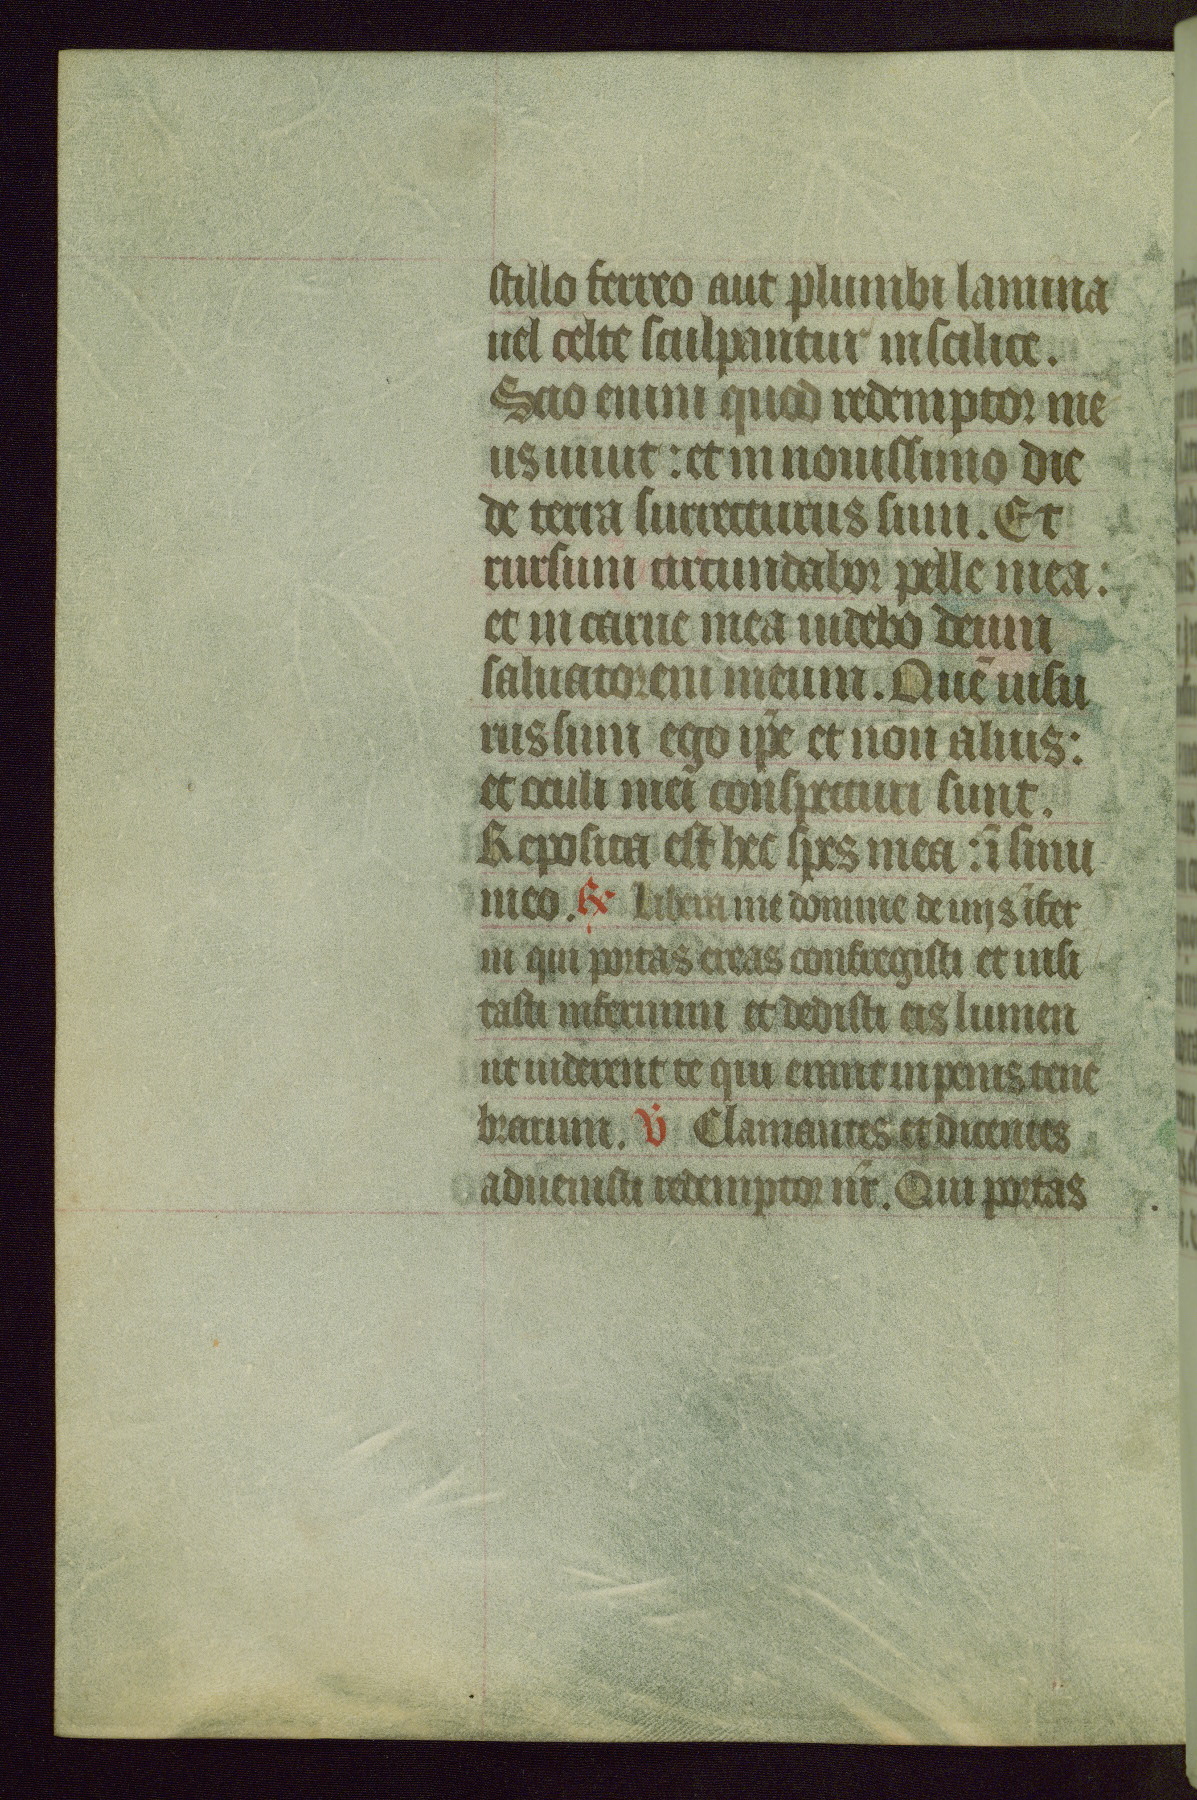 stillo ferreo aut plumbi lamina
uel celte sculpantur in scilice.
Scio enim quod redemptor me
us uiuit : et in nouissimo die
de terra surrecturus sum. Et
rursum circundabor pelle mea :
et in carne mea uidebo deum
saluatorem meum. Quē uisu
rus sum ego ip̄e et non alius :
et oculi mei conspecturi sunt.
Reposita est hec spes mea : ī sinu
meo. ℟ Libera me domine de uijs īfer
ni qui portas ereas confregisti et uisi
tasti infernum et dedisti eis lumen
ut uiderent te qui erant in penis tene
brarum. ℣ Clamantes et dicentes
aduenisti redemptor nr̄. Qui portas